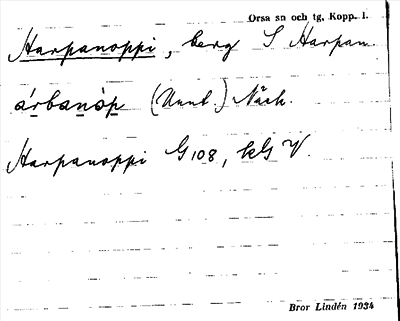 Orsa sn och tg, Kopp. l.
Harpanoppi, berg S Harpan.
árbanòp (Unnb.) Näck.
Harpanoppi G 108, kls V.
Bror Lindén 1934